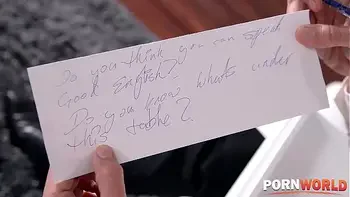 Do you think you can speak
Good English?
Do you know what's under
this table?
PORNWORLD